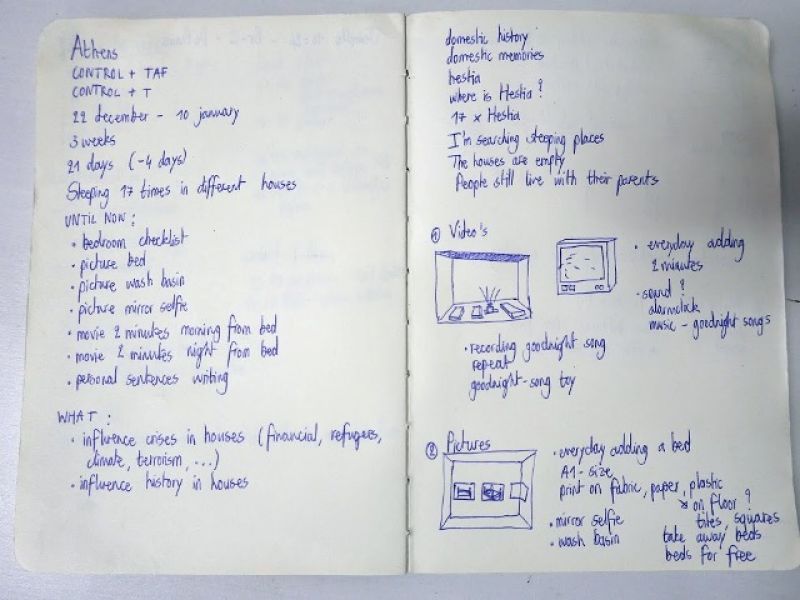 Athens
CONTROL + TAF
CONTROL + T
22 december - 10 january
3 weeks
21 days (-4 days)
Sleeping 17 times in different houses
UNTIL NOW :
• bedroom checklist
• picture bed
• picture wash basin
• picture mirror selfie
• movie 2 minutes morning from bed
• movie 2 minutes night from bed
• personal sentences writing
WHAT :
• influence crises in houses (financial, refugees,
climate, terrorism, ...)
• influence history in houses
domestic history
domestic memories
hestia
where is Hestia ?
17 x Hestia
I'm searching sleeping places
The houses are empty
People still live with their parents
① Video's
• everyday adding
2 minutes
• sound ?
alarmclock
music - goodnight songs
• recording goodnight song
repeat
goodnight-song toy
② Pictures
• everyday adding a bed
A1-size
print on fabric, paper, plastic
on floor ?
tiles, squares
• mirror selfie
• wash basin
take away beds
beds for free